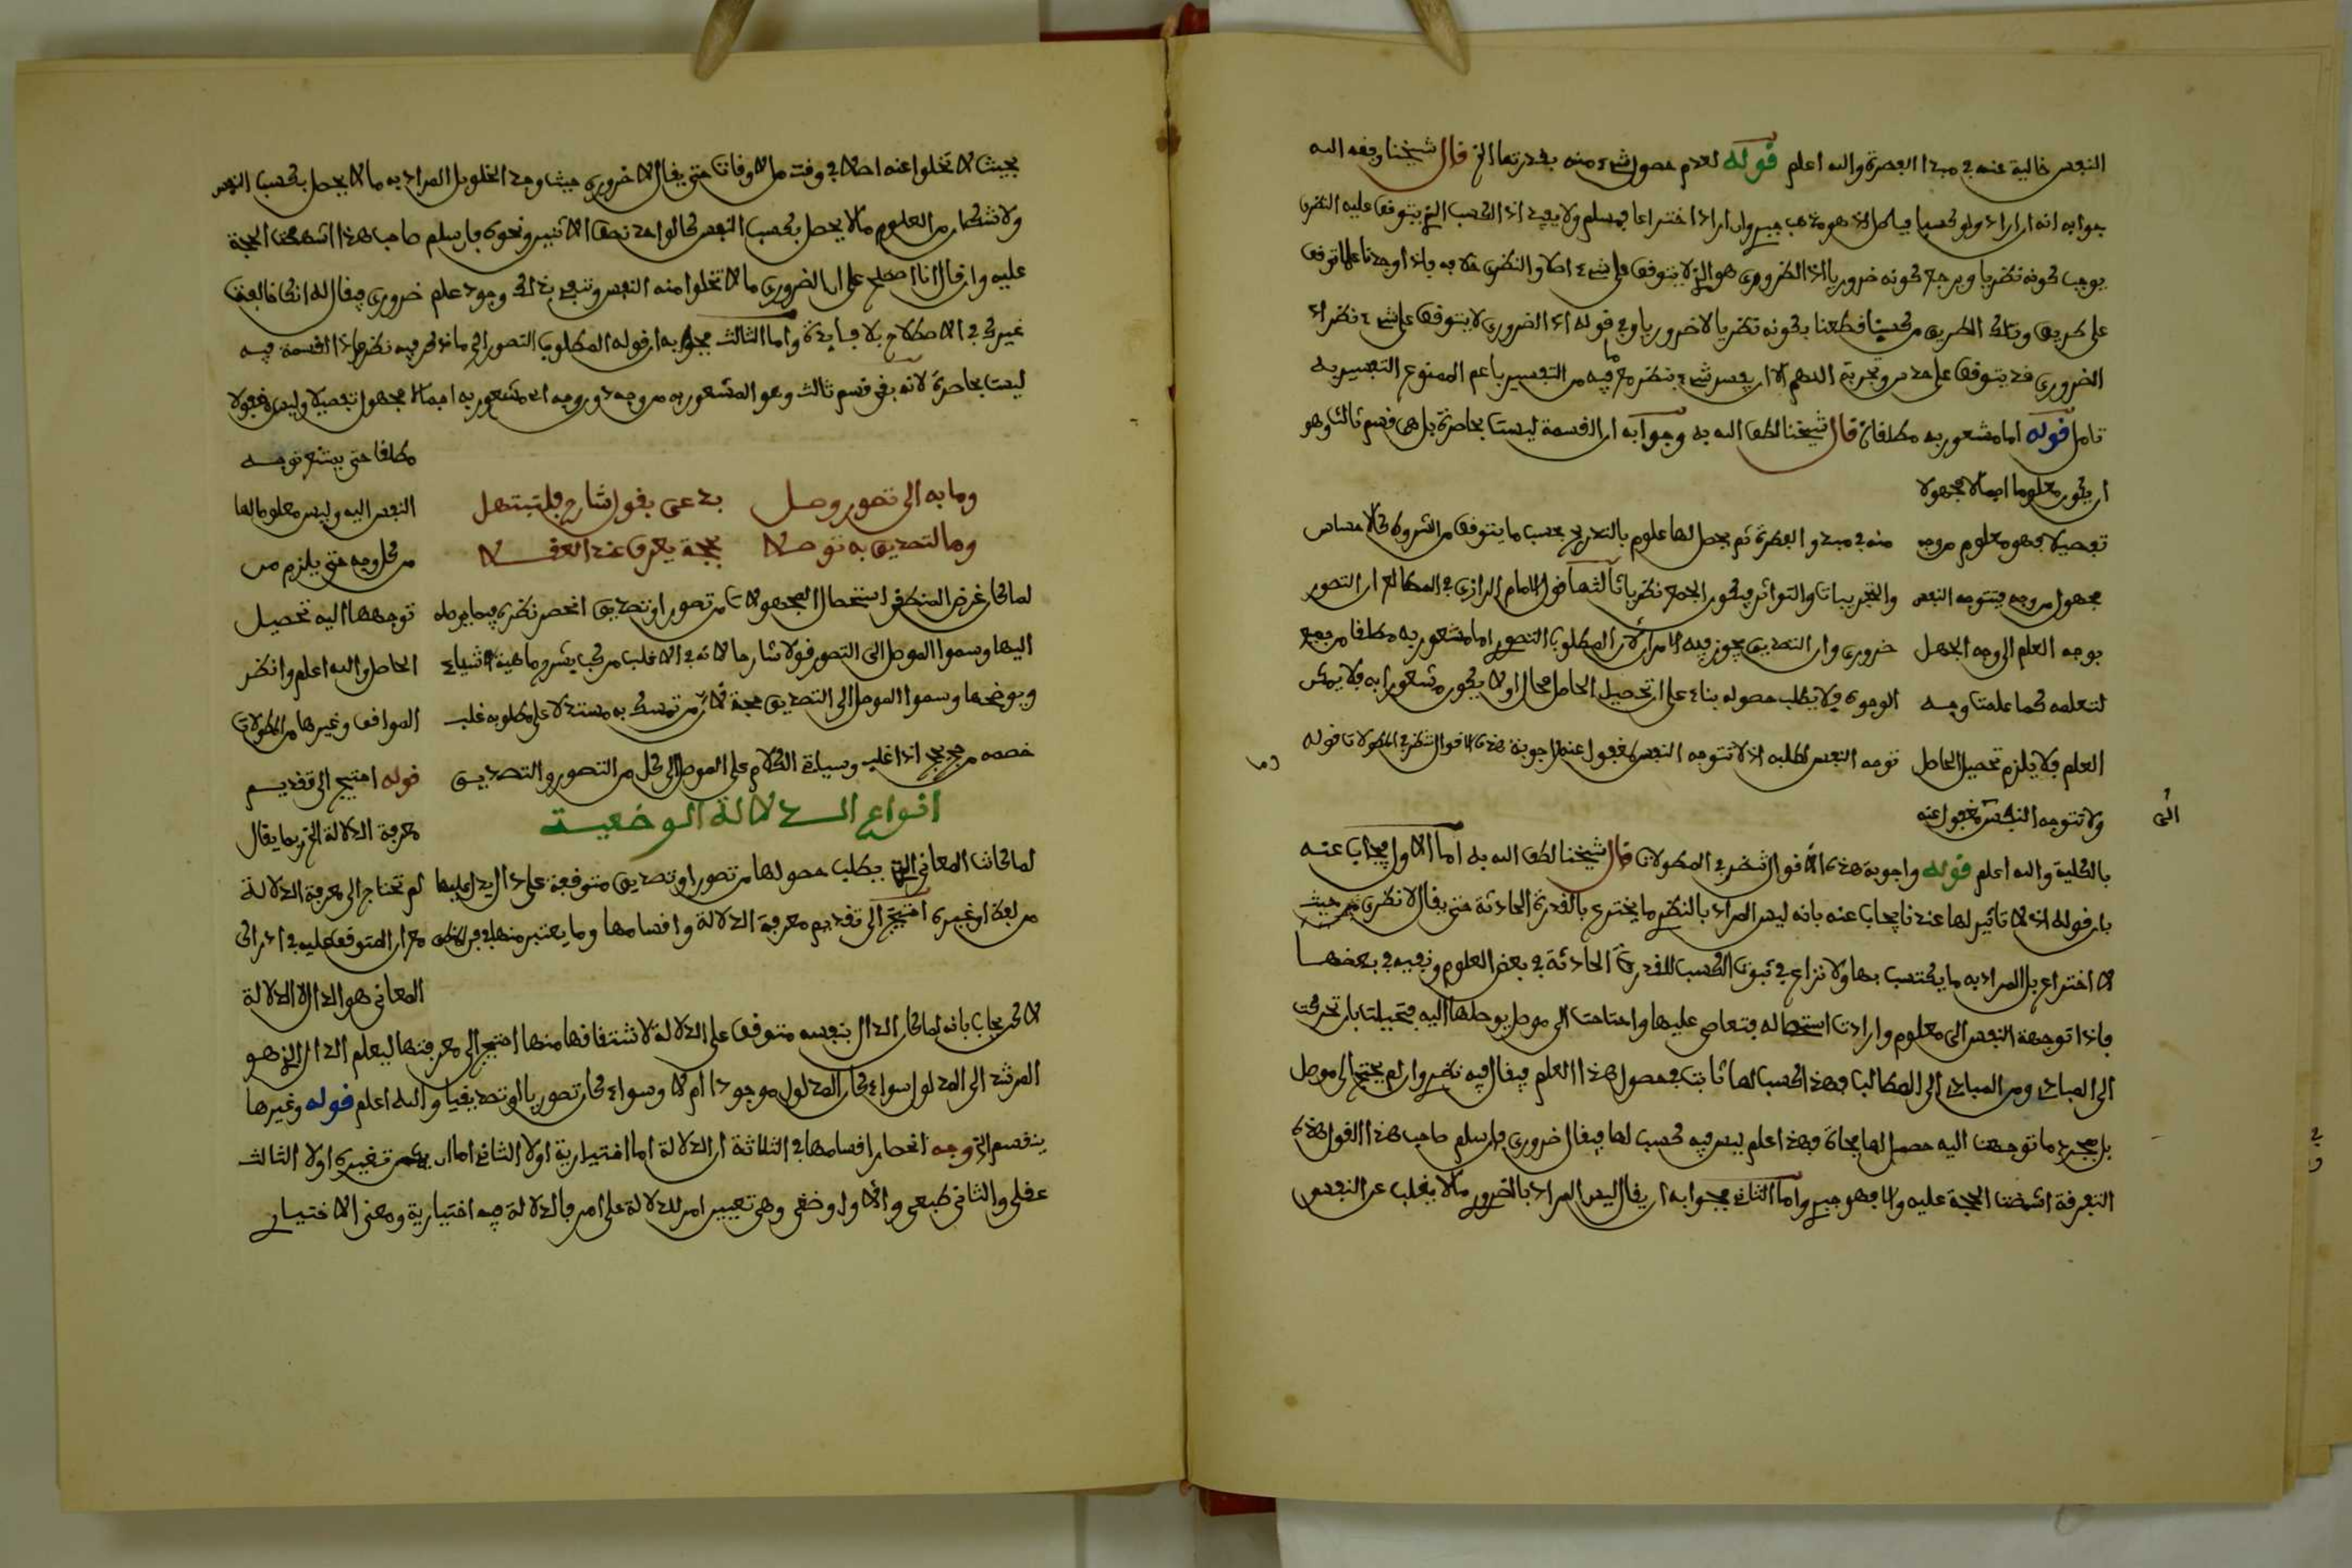 النفس خالية عنه في مبدا الفطرة والله اعلم قوله لعدم حصول شيء منه بقدرتها الخ قال شيخنا وفقه الله
جوابه انه ان اراد ولو كسبا فباطل اذ هو مذهب جبر وان اراد اختراعا فمسلم ولا يفيد اذ الكسب الذي يتوقف عليه النظري
يوجب كونه نظريا ويرجع كونه ضروريا اذ الضروري هو الذي لا يتوقف على شيء اصلا والنظري خلافه فاذا وجدنا علما توقف
على طريق وتلك الطريق من كسبنا قطعنا بكونه نظريا لا ضروريا وفي قوله اذ الضروري لا يتوقف على شيء نظر اذ
الضروري قد يتوقف على حدس وتجربة اللهم الا ان يفسر شيء بنظر مع ما فيه من التفسير باعم الممنوع التفسير به
تامل قوله اما مشعور به مطلقا الخ قال شيخنا لطف الله به وجوابه ان القسمة ليست بحاصرة بل هي قسم ثالث وهو
ان يكون معلوما اجمالا مجهولا
تفصيلا فهو معلوم من وجه
مجهول من وجه فتتوجه النفس
بوجه العلم الى وجه الجهل
لتعلمه كما علمت وجه
العلم فلا يلزم تحصيل الحاصل
ولا تتوجه النفس لمغفول عنه
منه في مبدو الفطرة ثم يحصل لها علوم بالتدريج بحسب ما يتوقف من الشروط كالاحساس
والتجريبات والتواتر فيكون الجمع نظريا ثالثها قول الامام الرازي في المطالع ان التصور
ضروري وان التصديق يجوز فيه الامران لان المطلوب التصور اما مشعور به مطلقا من جميع
الوجوه فلا يطلب حصوله بناء على ان تحصيل الحاصل محال او لا يكون مشعورا به فلا يمكن
توجه النفس لطلبه اذ لا تتوجه النفس لمغفول عنه واجوبة هذه الاقوال تنظر في المطولات قوله
بالكلية والله اعلم قوله واجوبة هذه الاقوال تنظر في المطولات قال شيخنا لطف الله به اما الاول فيجاب عنه
بان قوله اذ لا تاثير لها عندنا يجاب عنه بانه ليس المراد بالنظر ما يخترع بالقدرة الحادثة حتى يقال لا نظري من حيث
لا اختراع بل المراد به ما يكتسب بها ولا نزاع في ثبوت الكسب للقدرة الحادثة في بعض العلوم ونفيه في بعضها
فاذا توجهة النفس الى معلوم وارادت استحصاله فتعاصى عليها واحتاجت الى موصل يوصلها اليه فتحيلت بان تحركت
الى المبادي ومن المبادي الى المطالب فهذا كسب لها ثابت في حصول هذا العلم فيقال فيه نظري وان لم يحتج الى موصل
بل بمجرد ما توجهت اليه حصل لها فجاة فهذا علم ليس فيه كسب لها فيقال ضروري فان سلم صاحب هذا القول هذه
التفرقة انتهضت الحجة عليه والا فهو جبر واما الثاني فجوابه ان يقال ليس المراد بالضروري ما لا يغلب عن النفس
بحيث لا تخلوا عنه اصلا في وقت من الاوقات حتى يقال لا ضروري حيث وجد الخلو بل المراد به ما لا يحصل بكسب النفس
ولا شك ان من العلوم ما لا يحصل بكسب النفس كالواحد نصف الاثنين ونحوه فان سلم صاحب هذا انتهضت الحجة
عليه وان قال انا اصطلح على ان الضروري ما لا تخلوا منه النفس وننفي بذلك وجود علم ضروري فيقال له انك خالفت
غيرك في الاصطلاح بلا فايدة واما الثالث فجوابه ان قوله المطلوب التصور الى ماذكر فيه نظر اذ القسمة فيه
ليست بحاصرة لانه بقي قسم ثالث وهو المشعور به من وجه دون وجه اي مشعور به اجمالا مجهول تفصيلا وليس مغفولا
مطلقا حتى يمتنع توجه
النفس اليه وليس معلوما لها
من كل وجه حتى يلزم من
توجهها اليه تحصيل
الحاصل والله اعلم وانظر
المواقف وغيرها من المطولات
قوله احتيج الى تقديم
معرفة الدلالة الخ ربما يقال
لم تحتاج الى معرفة الدلالة
مع ان المتوقف عليه في ادراك
المعاني هو الدال لا الدلالة
وما به الى تصور وصل بدعى بقول شارح فلتبتهل
وما لتصديق به توصلا بحجة يعرف عند العقلا
لما كان غرض المنطقي استحصال المجهولات من تصور او تصديق انحصر نظره فيما يوصله
اليها وسموا الموصل الى التصور قولا شارحا لانه في الاغلب مركب يشرح ماهية الاشياء
ويوضحها وسموا الموصل الى التصديق حجة لان من تمسك به مستدلا على مطلوبه غلب
خصمه من حج يحج اذا غلب وسياتي الكلام على الموصل الى كل من التصور والتصديق
انواع الدلالة الوضعية
لما كانت المعاني التي يطلب حصولها من تصور او تصديق متوقفة على دال يدل عليها
من لفظ او غيره احتيج الى تقديم معرفة الدلالة واقسامها وما يعتبر منها في
لاكن يجاب بانه لما كان الدال بنفسه متوقف على الدلالة لاشتقاقها منها احتيج الى معرفتها ليعلم الدال الذي هو
المرشد الى المدلول سواء كان المدلول موجودا ام لا وسواء كان تصوريا او تصديقيا والله اعلم قوله وغيرها
ينقسم الخ وجه انحصار اقسامها في الثلاثة ان الدلالة اما اختيارية او لا الثاني اما ان يمكن تغييره او لا الثالث
عقلي والثاني طبعي والاول وضعي وهي تعيير امر للدلالة على امر فالدلالة فيه اختيارية ومعنى الاختيار